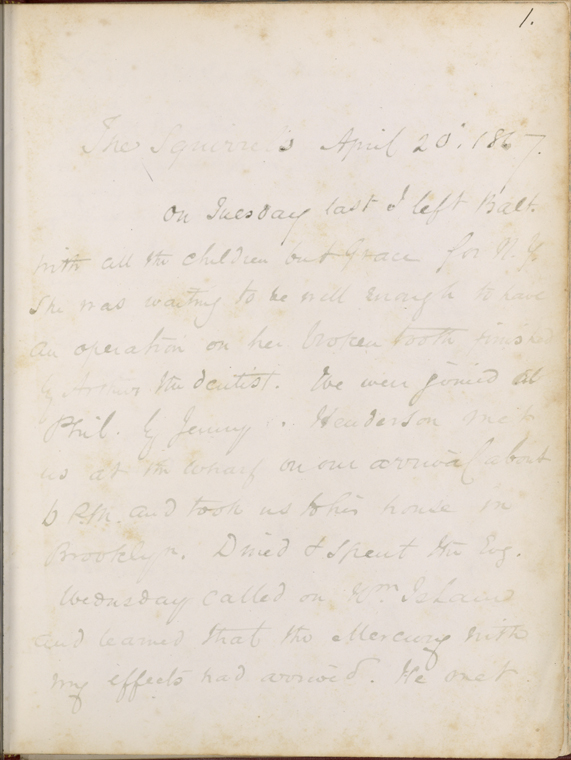 1.
The Squirrels April 20. 1867.
On Tuesday last I left Balt.
with all the children but Grace for N.Y.
She was waiting to be well enough to have
an operation on her broken tooth finished
by the dentist. We were joined at
Phil. by Jenny. Henderson met
us at the wharf on our arrival about
6 P.M. and took us to his house in
Brooklyn. Dined & spent the Evg.
Wednesday called on Wm
and learned that the Mercury with
my effects had arrived. He met